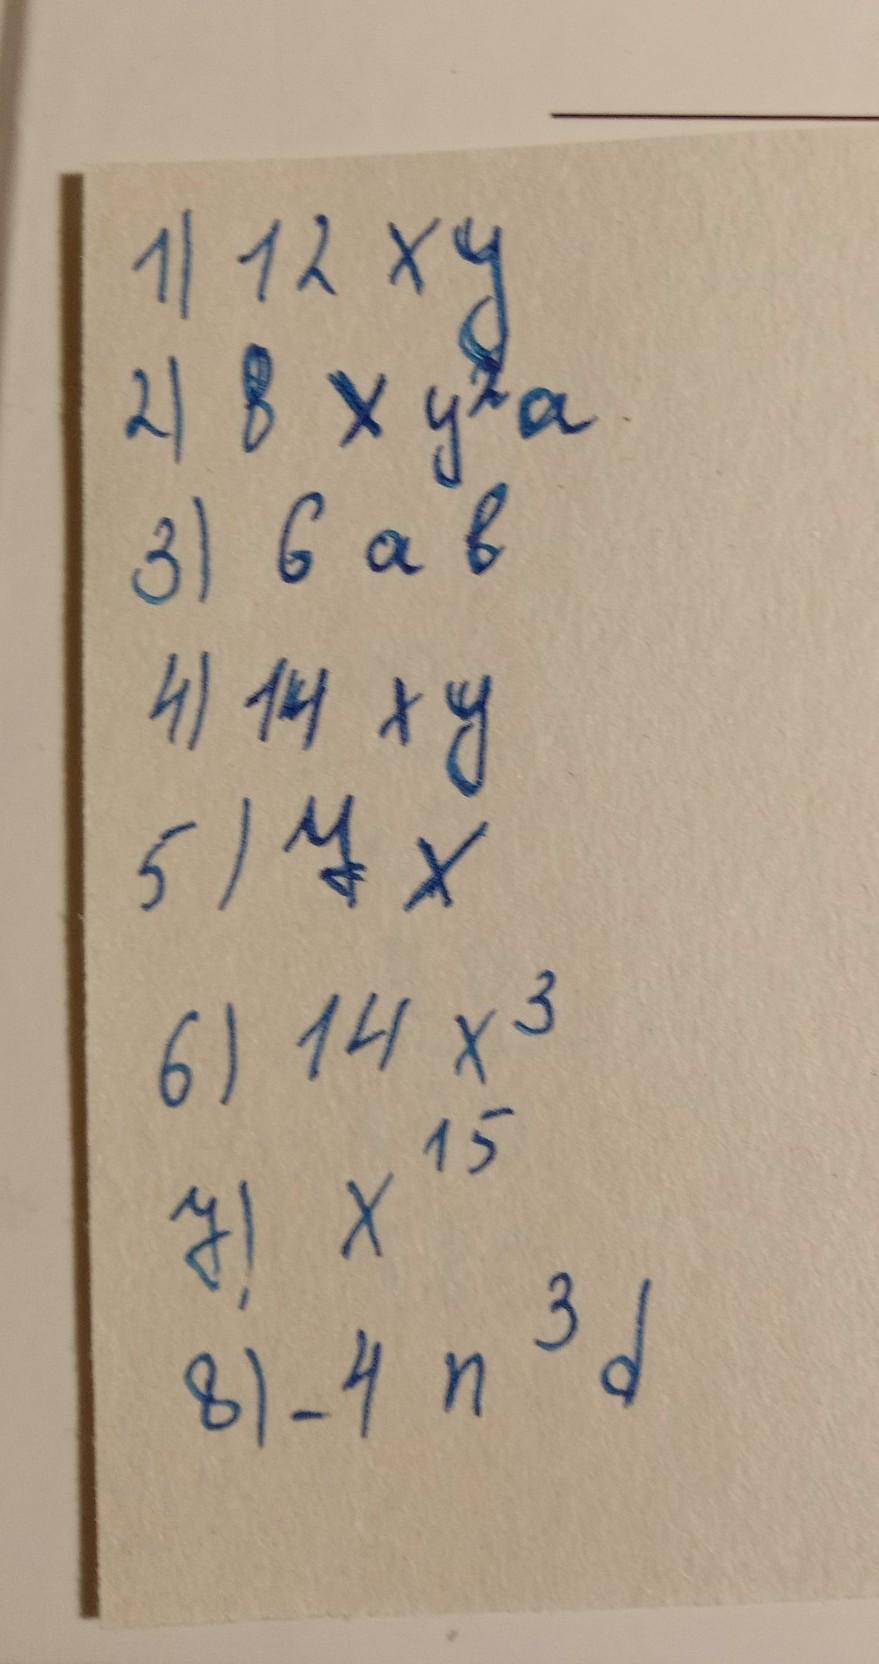 1) 12 xy
2) 8 x y²a
3) 6 a b
4) 14 xy
5) 7 x
6) 14 x³
7) x¹⁵
8) -4 n³d